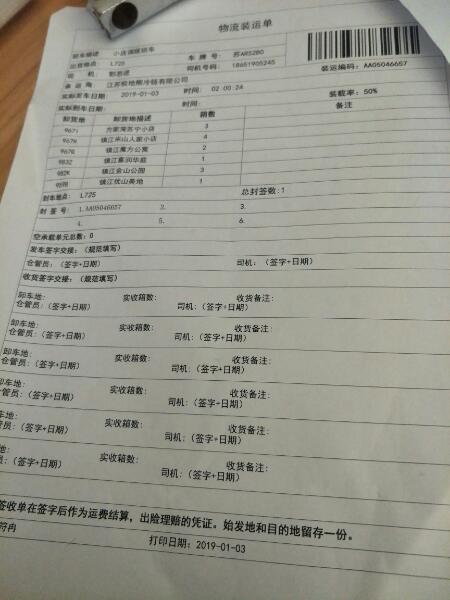 物流装运单
卸车描述 小店
出发地点: L725 车 牌 号: 苏AR5280
司 机: 司机号码: 18651905245 装运编码: AA05046657
承 运 商: 江苏极地熊冷链有限公司
实际发车日期: 2019-01-03 时间: 02:00:24 装载率: 50%
实际到车日期: 时间: 备注
卸货地 卸货地描述 箱数
967i 方家湾苏宁小店 3
967H 镇江米山人家小店 4
967G 镇江魔方公寓 2
9832 镇江嘉润华庭 1
982K 镇江金山公园 3
镇江优山美地 1
封车地点: L725 总封签数:1
封 签 号: 1.AA05046657 2. 3.
4. 5. 6.
空承载单元总数: 0
发车签字交接: (规范填写)
仓管员: (签字+日期) 司机: (签字+日期)
收货签字交接: (规范填写)
卸车地: 实收箱数: 收货备注:
仓管员: (签字+日期) 司机: (签字+日期)
卸车地: 实收箱数: 收货备注:
仓管员: (签字+日期) 司机: (签字+日期)
卸车地: 实收箱数: 收货备注:
仓管员: (签字+日期) 司机: (签字+日期)
卸车地: 实收箱数: 收货备注:
管员: (签字+日期) 司机: (签字+日期)
车地: 实收箱数: 收货备注:
员: (签字+日期) 司机: (签字+日期)
车地: 实收箱数: 收货备注:
员: (签字+日期) 司机: (签字+日期)
签收单在签字后作为运费结算，出险理赔的凭证。始发地和目的地留存一份。
符冉 打印日期: 2019-01-03